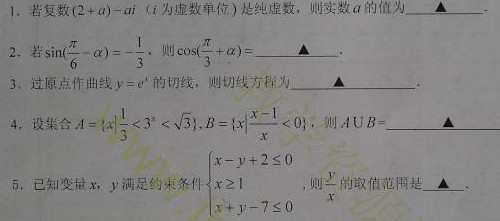 1．若复数(2+a)−ai（i 为虚数单位）是纯虚数，则实数 a 的值为 ▲ ．
2．若 sin(π/6−α)=−1/3，则 cos(π/3+α)= ▲ ．
3．过原点作曲线 y=eˣ 的切线，则切线方程为 ▲ ．
4．设集合 A={x|1/3<3ˣ<√3}，B={x|(x−1)/x<0}，则 A∪B= ▲
5．已知变量 x，y 满足约束条件{x−y+2≤0
x≥1
x+y−7≤0，则 y/x 的取值范围是 ▲ ．